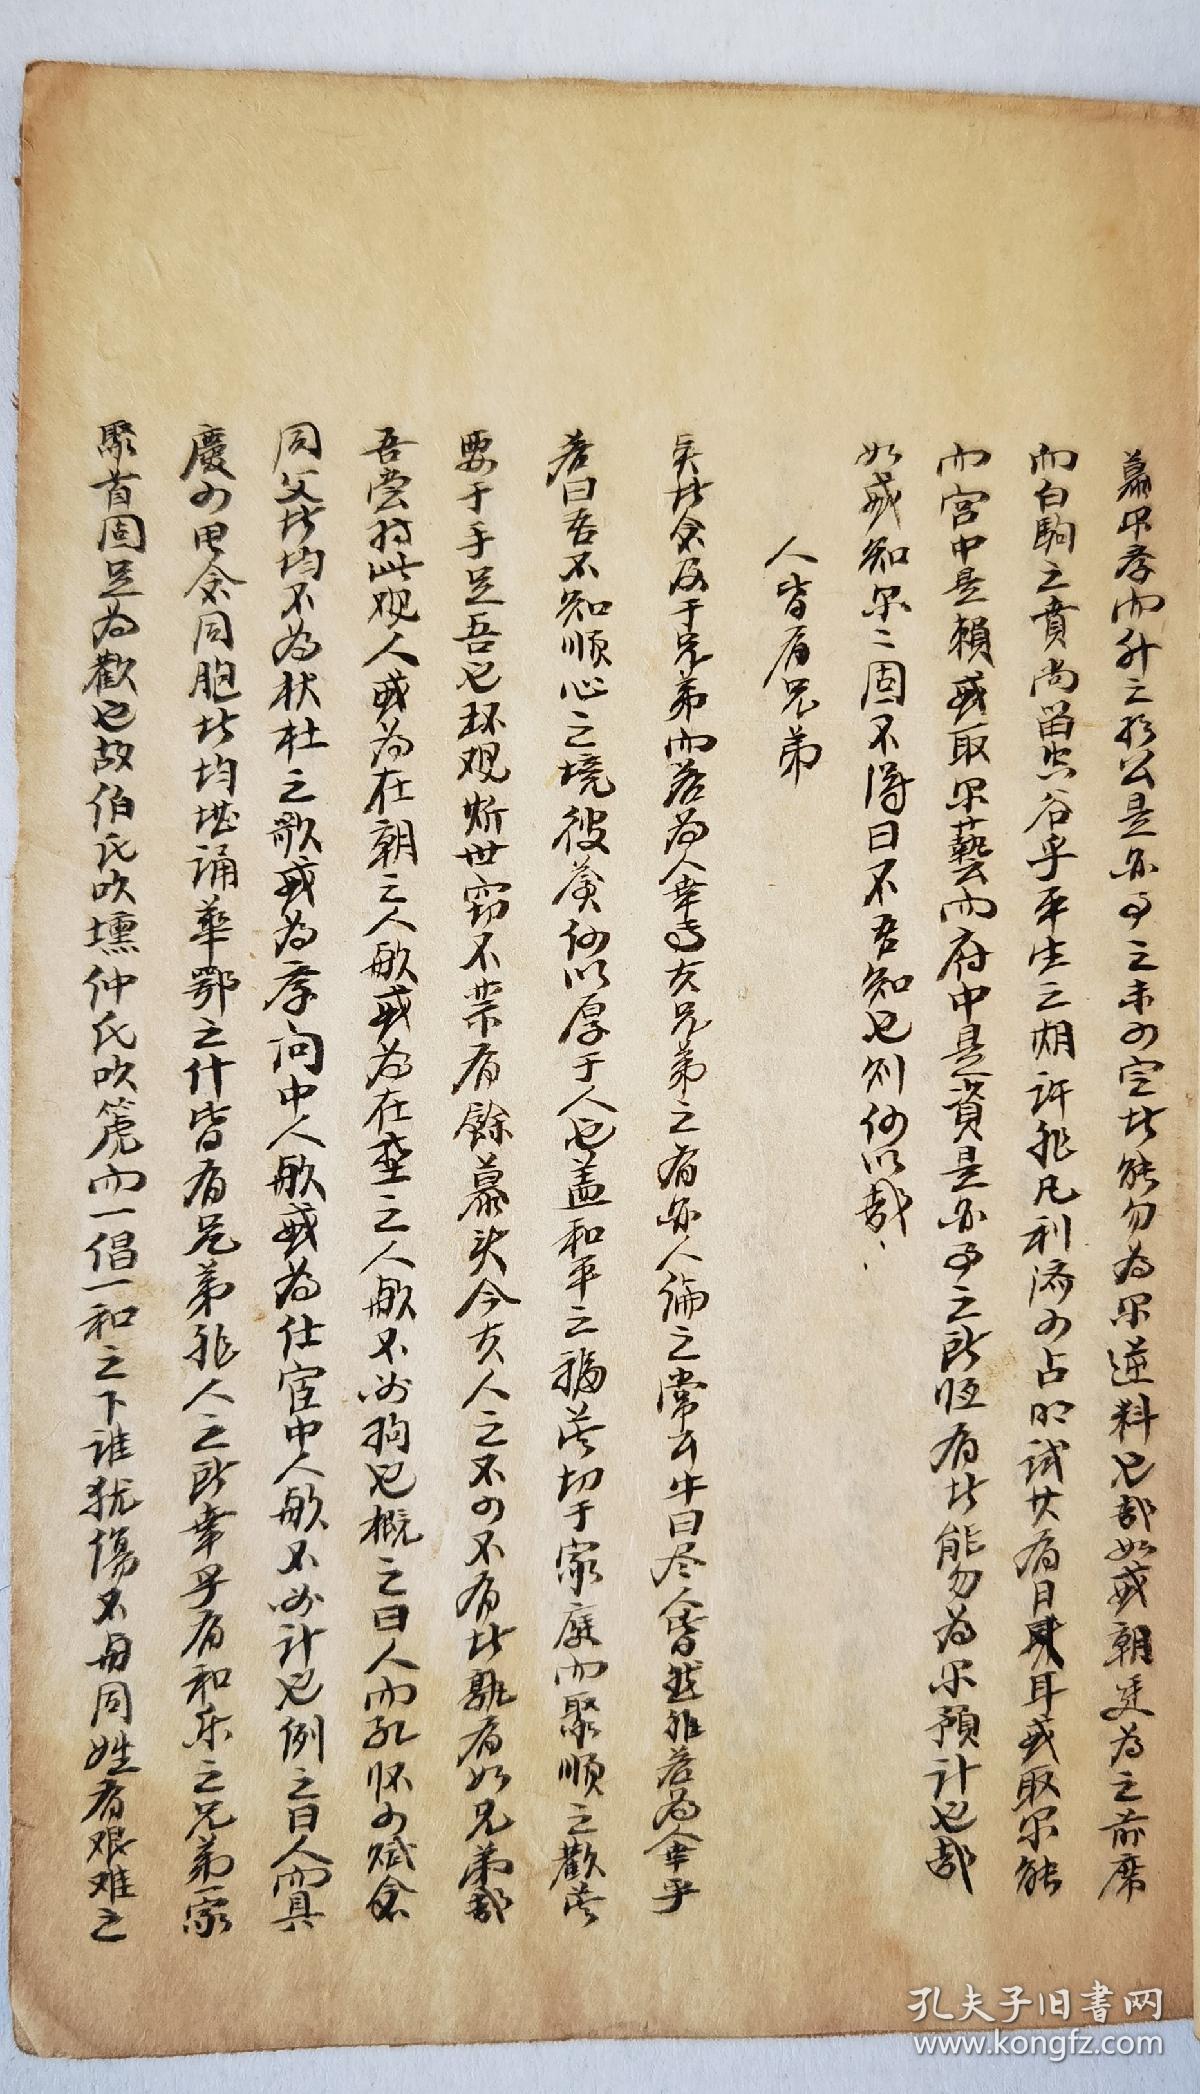 而升之於公是亦事之未可定者能勿為尔逆料也哉如或朝廷為之前席
而白駒之賁尚留空谷乎平生之期許非凡利済可占明試其有日耳或取尔能
而宮中是賴或取尔藝而府中是資是亦事之所恆有者能勿為尔預計也哉
如或知尔尔固不得曰不吾知也则何以哉
人皆有兄弟
矣者念及于兄弟而若為人幸焉夫兄弟之有亦人倫之常云牛曰尽人皆然非若為幸乎
若曰吾不知順心之境彼蒼何以厚于人也盖和平之福莫切于家庭而聚順之歡莫
要于手足吾也环观斯世窃不禁有餘慕矣今夫人之不可不有者孰有如兄弟哉
吾嘗持此观人或為在朝之人歟或為在野之人歟不必拘也概之曰人而孔怀可赋念
同父者均不為杕杜之歌或為学问中人歟或為仕宦中人歟不必计也例之曰人而具
慶可申念同胞者均堪诵華鄂之什皆有兄弟非人之所幸乎有和乐之兄弟一家
聚首固足為歡也故伯氏吹壎仲氏吹篪而一倡一和之下谁犹傷不毋同姓有艰难之
孔夫子旧書网
www.kongfz.com